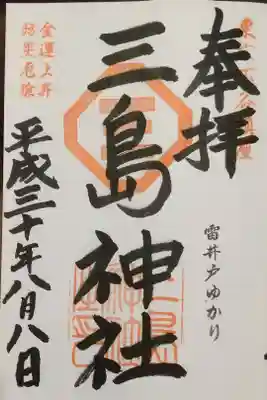 奉拝
雷井戸ゆかり
三島神社
平成三十年八月八日
金運上昇